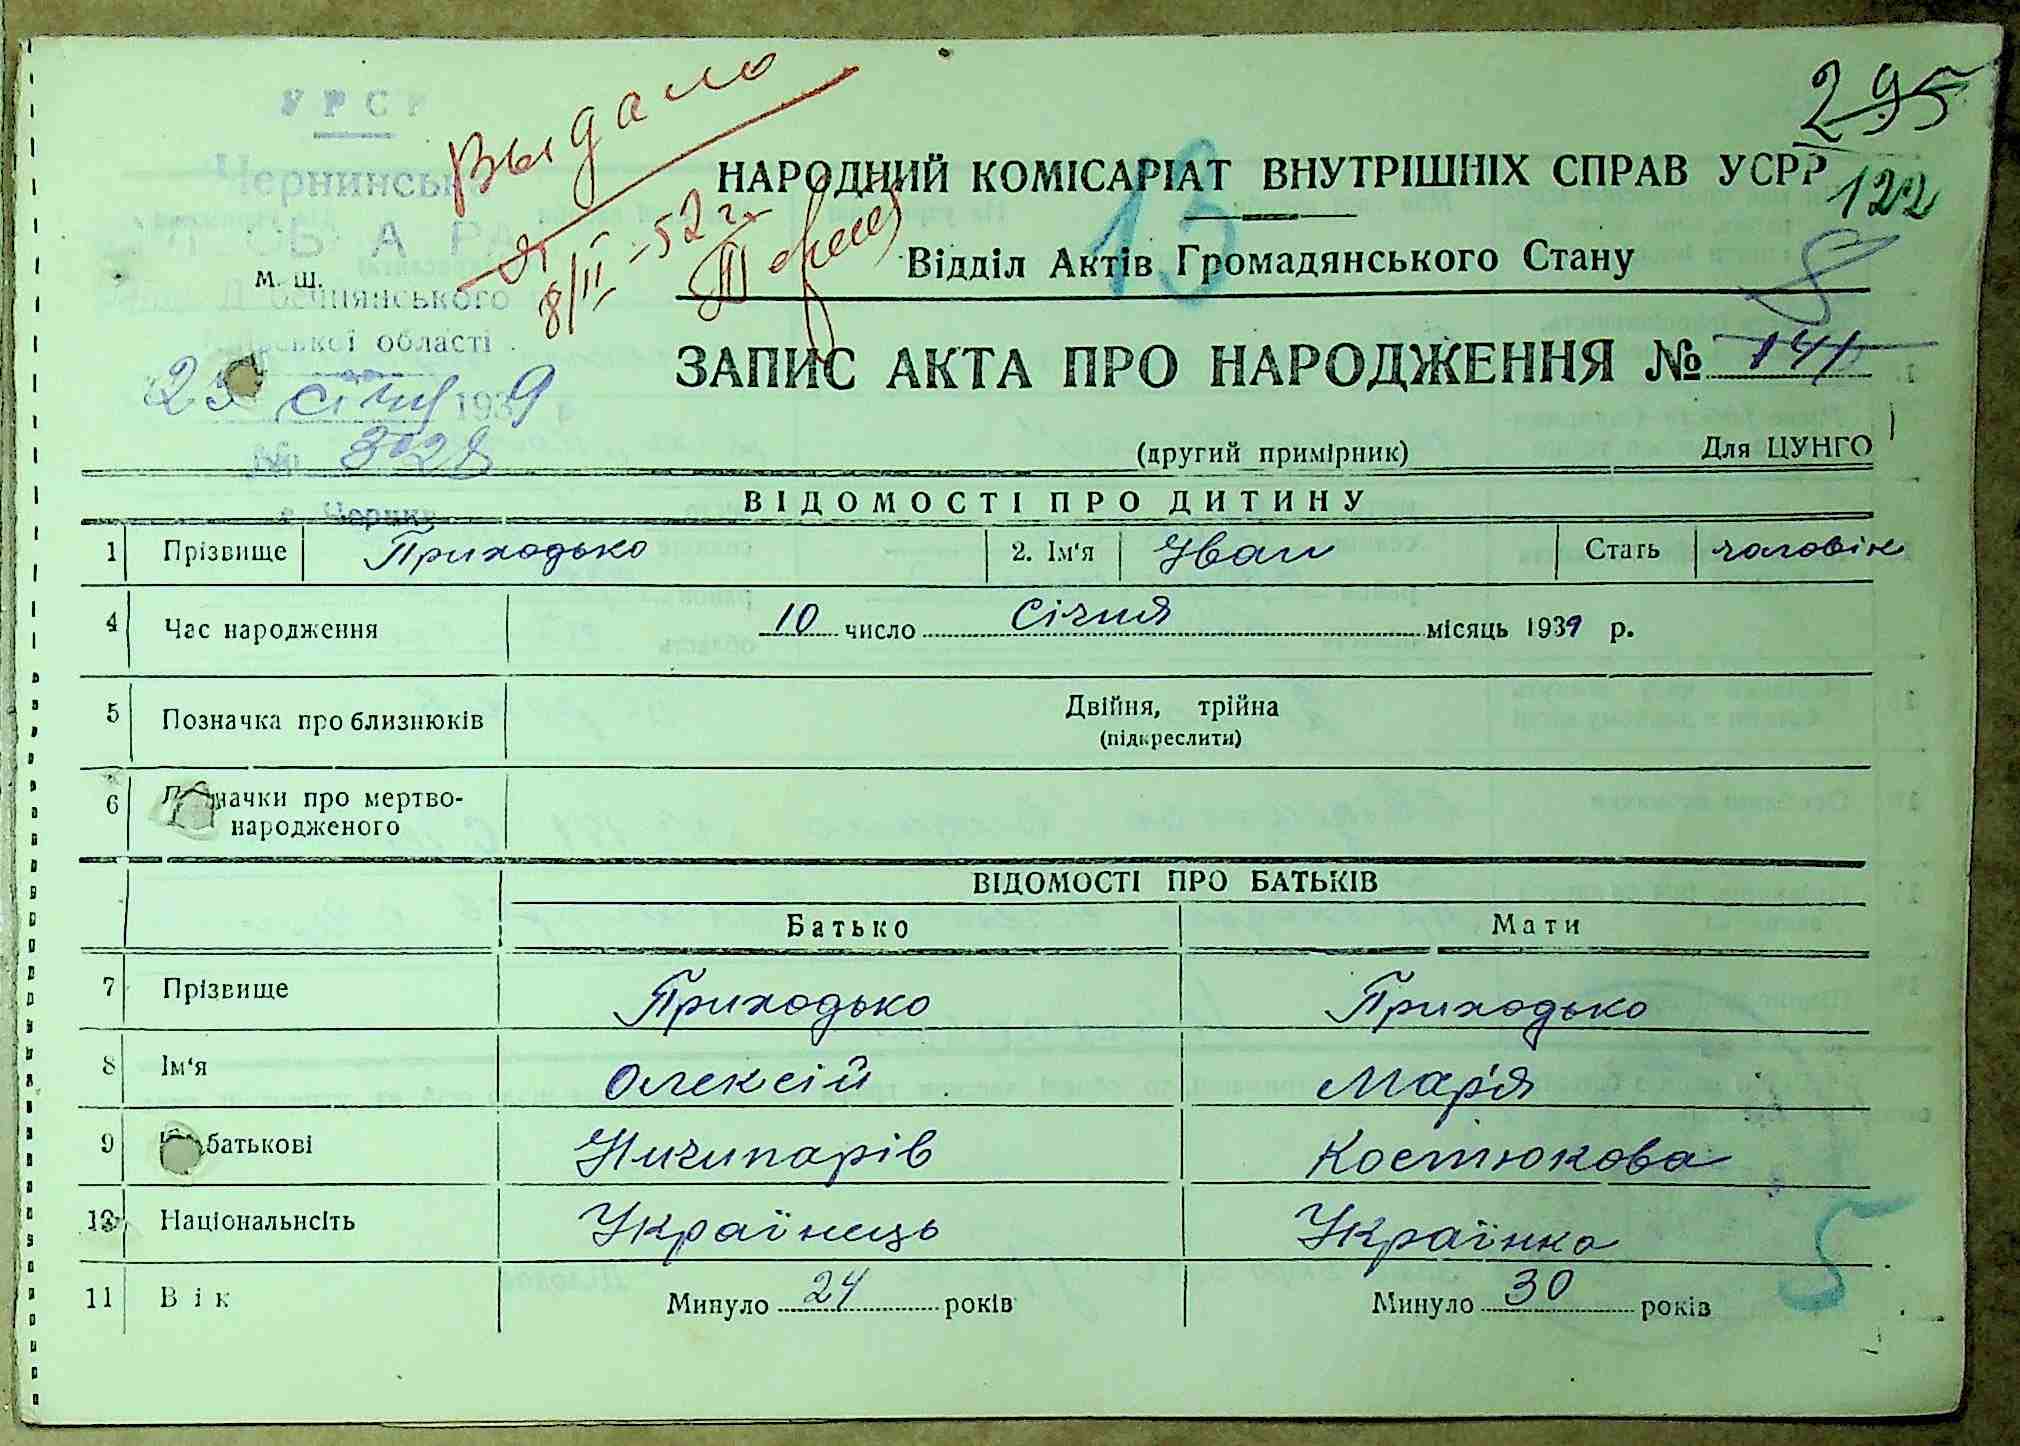 УРСР
Выдано
295
НАРОДНИЙ КОМІСАРІАТ ВНУТРІШНІХ СПРАВ УСРР
122
8/II-52 г.
13
Відділ Актів Громадянського Стану
М. Ш.
області
8
ЗАПИС АКТА ПРО НАРОДЖЕННЯ №
січня 1939
№ 3028
(другий примірник) Для ЦУНГО
ВІДОМОСТІ ПРО ДИТИНУ
1 Прізвище Приходько 2. Ім'я Іван Стать чоловік
4 Час народження 10 число Січня місяць 1939 р.
5 Позначка про близнюків Двійня, трійна
(підкреслити)
6 Позначки про мертво-
народженого
ВІДОМОСТІ ПРО БАТЬКІВ
Батько Мати
7 Прізвище Приходько Приходько
8 Ім'я Олексій Мар'я
9 По батькові Ничипарів Костюкова
10 Національнсіть Українець Українка
5
11 Вік Минуло 24 років Минуло 30 років